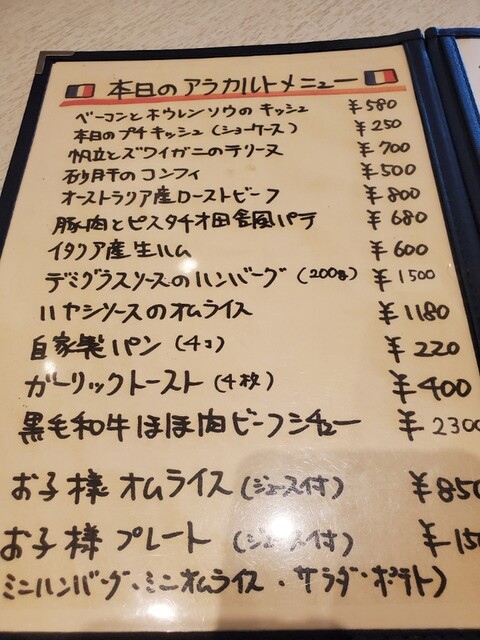 本日のアラカルトメニュー
ベーコンとホウレンソウのキッシュ ¥580
本日のプチキッシュ(ショーケース) ¥250
帆立とズワイガニのテリーヌ ¥700
砂肝のコンフィ ¥500
オーストラリア産ローストビーフ ¥800
豚肉とピスタチオ田舎風パテ ¥680
イタリア産生ハム ¥600
デミグラスソースのハンバーグ(200g) ¥1500
ハヤシソースのオムライス ¥1180
自家製パン(4コ) ¥220
ガーリックトースト(4枚) ¥400
黒毛和牛ほほ肉ビーフシチュー ¥2300
お子様オムライス(ジュース付) ¥850
お子様プレート(ジュース付) ¥15
ミニハンバーグ・ミニオムライス・サラダ・ポテト)